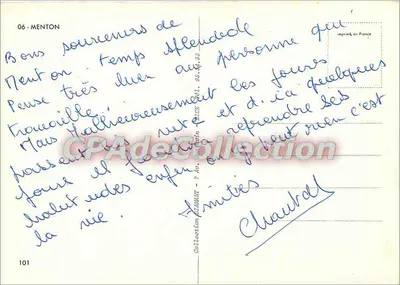 06 - MENTON
imprimé en France
Bons souvenirs de
Menton. temps splendide
Pense très bien au personne qui
travaille.
Mais Malheureusement les jours
passent vite et d'ici quelques
jours il faudra reprendre ses
habitudes enfin on y peut rien c'est
la vie. Amitiés
Chantal
CPAdeCollection
101